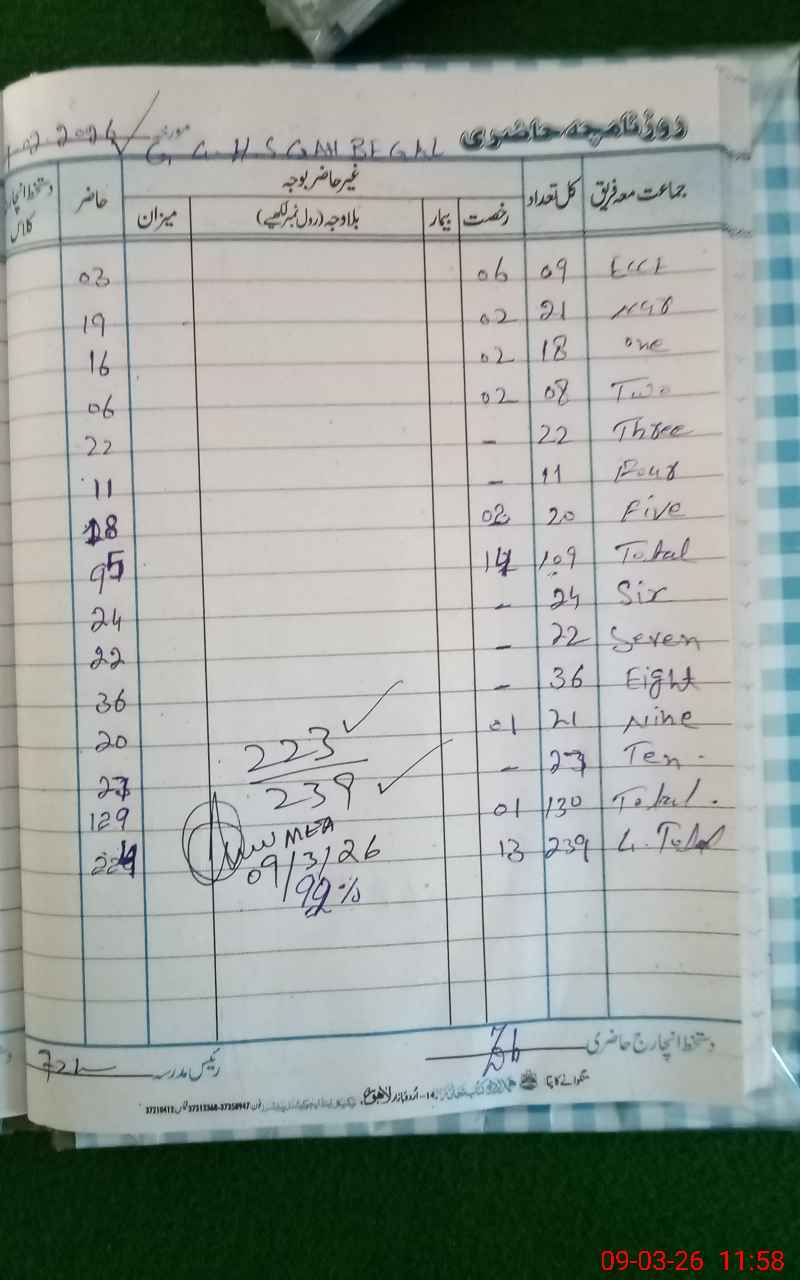 روزنامچہ حاضری G. G. H. S GAH BEGAL مورخہ 02-2026
جماعت معہ فریق کل تعداد غیر حاضر بوجہ حاضر دستخط انچارج کلاس
رخصت بیمار بلاوجہ (رول نمبر لکھیے) میزان
ECCE 09 06 03
21 02 19
one 18 02 16
Two 08 02 06
Three 22 - 22
Four 11 - 11
Five 20 02 18
Total 109 14 95
Six 24 - 24
Seven 22 - 22
Eight 36 - 36
Nine 21 01 20
Ten. 27 - 27
Total. 130 01 129
G. Total 239 13 224
223
239
MEA
09/3/26
92%
دستخط انچارج حاضری
رئیس مدرسہ
09-03-26 11:58